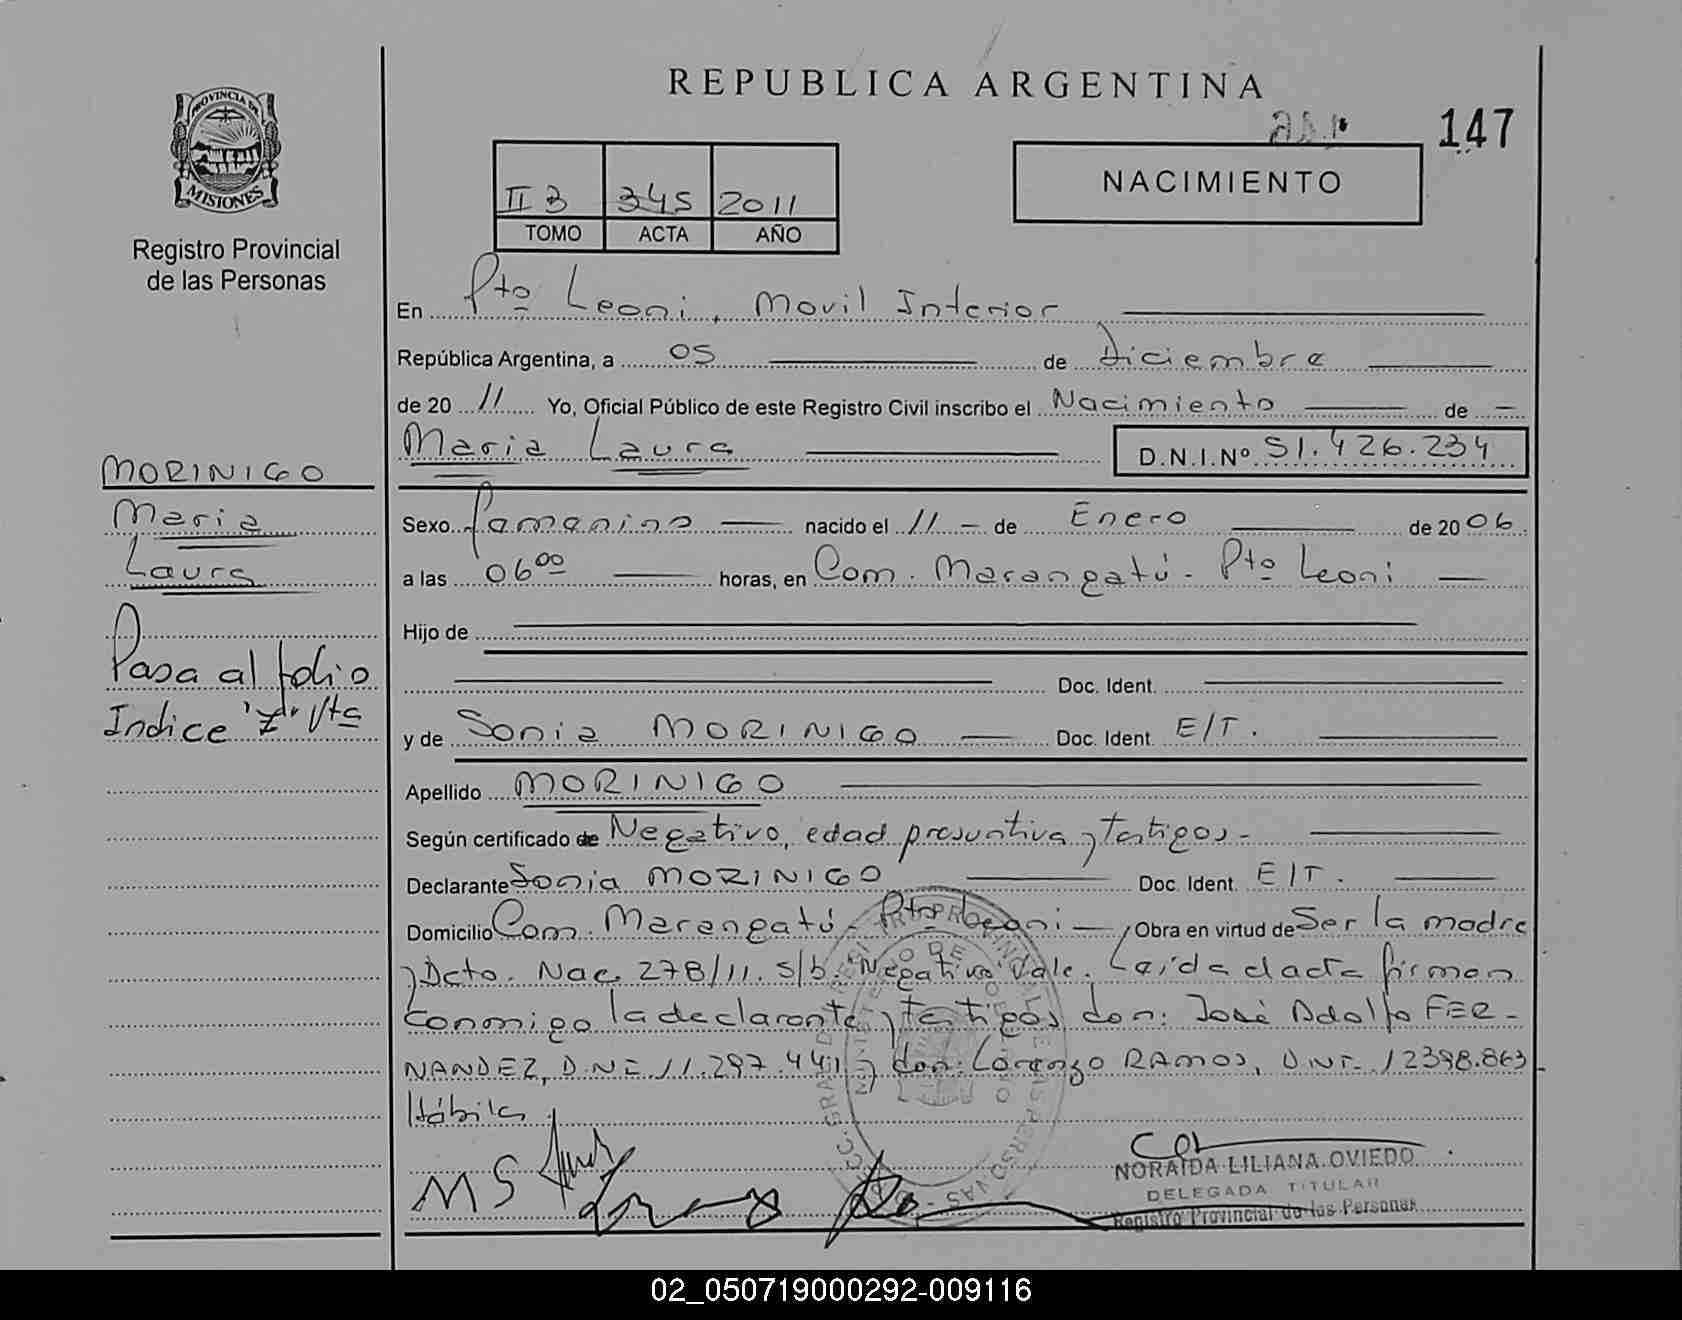 REPUBLICA ARGENTINA
147
PROVINCIA DE
MISIONES
Registro Provincial
de las Personas
NACIMIENTO
II B 345 2011
TOMO ACTA AÑO
En Pto Leoni, Movil Interior
República Argentina, a 05 de Diciembre
de 20 11 Yo, Oficial Público de este Registro Civil inscribo el Nacimiento de
Maria Laura D.N.I.Nº 51.426.234
MORINIGO
Maria
Laura
Pasa al folio
Indice "Z" Vta
Sexo Femenino nacido el 11 de Enero de 20 06
a las 06 00 horas, en Com. Marangatú - Pto Leoni
Hijo de
Doc. Ident.
y de Sonia MORINIGO Doc. Ident. E/T.
Apellido MORINIGO
Según certificado de Negativo, edad presuntiva y testigos -
Declarante Sonia MORINIGO Doc. Ident. E/T.
Domicilio Com. Marangatú - Pto Leoni Obra en virtud de Ser la madre
y Dcto. Nac. 278/11. S/b. "Negativo" Vale. Leída el acta firman
conmigo la declarante y testigos don: José Adolfo FER-
NANDEZ, D.N.I. 11.297.441 y don: Lorenzo RAMOS, D.N.I. 12398.863
Hábiles
M S
NORAIDA LILIANA OVIEDO
DELEGADA TITULAR
Registro Provincial de las Personas
02_050719000292-009116